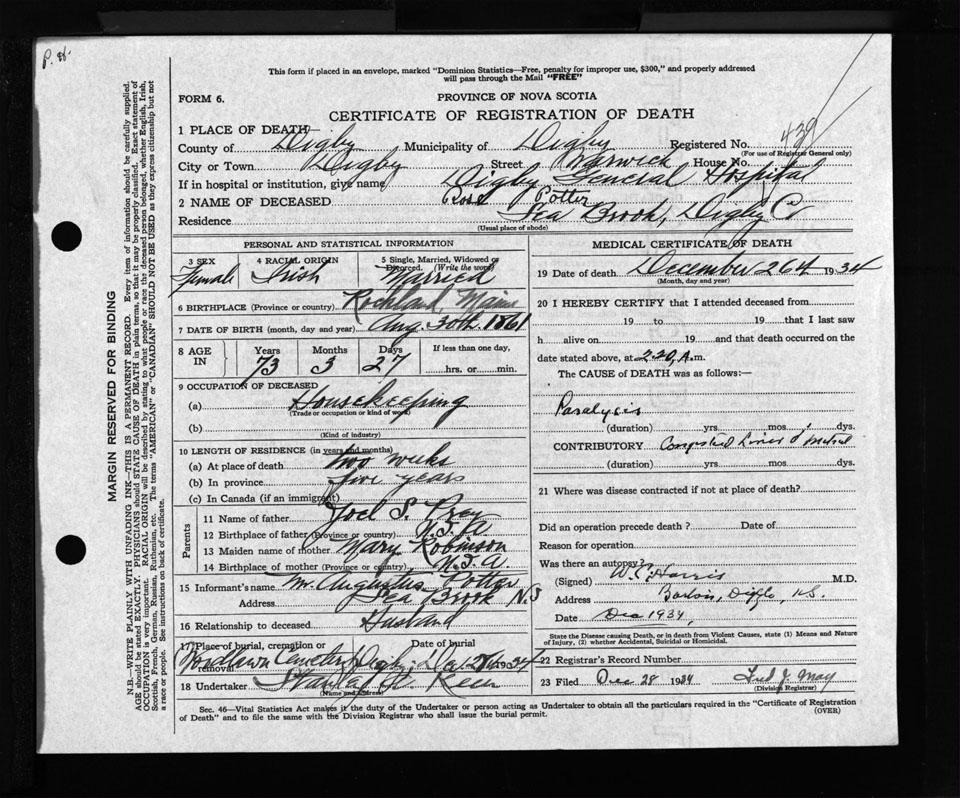 This form if placed in an envelope, marked "Dominion Statistics—Free, penalty for improper use, $300," and properly addressed
will pass through the Mail "FREE"
FORM 6.
PROVINCE OF NOVA SCOTIA
CERTIFICATE OF REGISTRATION OF DEATH
1 PLACE OF DEATH
County of Digby Municipality of Digby Registered No. 439
(For use of Registrar General only)
City or Town Digby Street Warwick House No.
If in hospital or institution, give name Digby General Hospital
2 NAME OF DECEASED Potter
Residence Sea Brook, Digby Co
(Usual place of abode)
PERSONAL AND STATISTICAL INFORMATION
3 SEX 4 RACIAL ORIGIN 5 Single, Married, Widowed or
Divorced. (Write the word)
Female Irish Married
6 BIRTHPLACE (Province or country) Rockland, Maine
7 DATE OF BIRTH (month, day and year) Aug. 30th 1861
8 AGE IN Years Months Days If less than one day,
73 3 27 hrs. or min.
9 OCCUPATION OF DECEASED
(a) Housekeeping
(Trade or occupation or kind of work)
(b)
(Kind of industry)
10 LENGTH OF RESIDENCE (in years and months)
(a) At place of death two weeks
(b) In province five years
(c) In Canada (if an immigrant)
Parents
11 Name of father Joel S.
12 Birthplace of father (Province or country) U.S.A
13 Maiden name of mother Mary Robinson
14 Birthplace of mother (Province or country) U.S.A.
15 Informant's name Mr Augustus Potter
Address Sea Brook N.S
16 Relationship to deceased Husband
17 Place of burial, cremation or removal Date of burial
Cemetery Digby 34
18 Undertaker Stanley
(Name and address)
MEDICAL CERTIFICATE OF DEATH
19 Date of death December 26th 1934
(Month, day and year)
20 I HEREBY CERTIFY that I attended deceased from
19 to 19 that I last saw
h alive on 19 and that death occurred on the
date stated above, at 2.20, A.m.
The CAUSE of DEATH was as follows:—
Paralysis
(duration) yrs mos. dys.
CONTRIBUTORY Congested Liver &
(duration) yrs mos. dys.
21 Where was disease contracted if not at place of death?
Did an operation precede death? Date of
Reason for operation
Was there an autopsy?
(Signed) Harris M.D.
Address Digby, N.S.
Date Dec 1934
State the Disease causing Death, or in death from Violent Causes, state (1) Means and Nature
of Injury, (2) whether Accidental, Suicidal or Homicidal.
22 Registrar's Record Number
23 Filed Dec 28 1934 Fred J. May
(Division Registrar)
Sec. 46—Vital Statistics Act makes it the duty of the Undertaker or person acting as Undertaker to obtain all the particulars required in the "Certificate of Registration
of Death" and to file the same with the Division Registrar who shall issue the burial permit.
(OVER)
MARGIN RESERVED FOR BINDING
N.B.—WRITE PLAINLY WITH UNFADING INK—THIS IS A PERMANENT RECORD. Every item of information should be carefully supplied.
AGE should be stated EXACTLY. PHYSICIANS should STATE CAUSE OF DEATH in plain terms, so that it may be properly classified. Exact statement of
OCCUPATION is very important. RACIAL ORIGIN will be described by stating to what people or race the deceased person belonged, whether English, Irish,
Scottish, French, German, Russian, Ruthenian, etc. The terms "AMERICAN" or "CANADIAN" SHOULD NOT BE USED as they express citizenship but not
a race or people. See instructions on back of certificate.